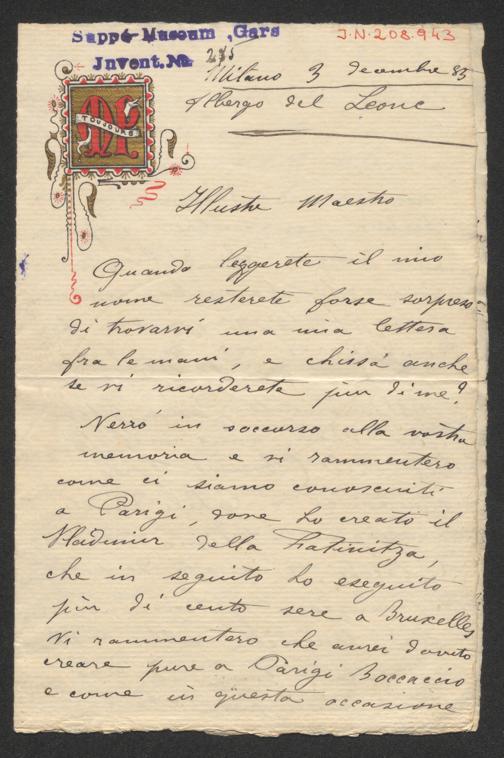 Suppé-Museum, Gars
J.N. 208.943
Invent. No 275
Milano 3 decembre 85
Albergo del Leone
TOUJOURS
Illustre Maestro
Quando leggerete il mio
nome resterete forse sorpreso
di trovarvi una mia lettera
fra le mani, e chissà anche
se vi ricorderete più di me?
Verró in soccorso alla vostra
memoria e vi rammenteró
come ci siamo conosciuti
a Parigi, dove ho creato il
Vladimir della Fatinitza,
che in seguito ho eseguito
più di cento sere a Bruxelles
Vi rammenteró che avrei dovuto
creare pure a Parigi Boccaccio
e come in questa occasione